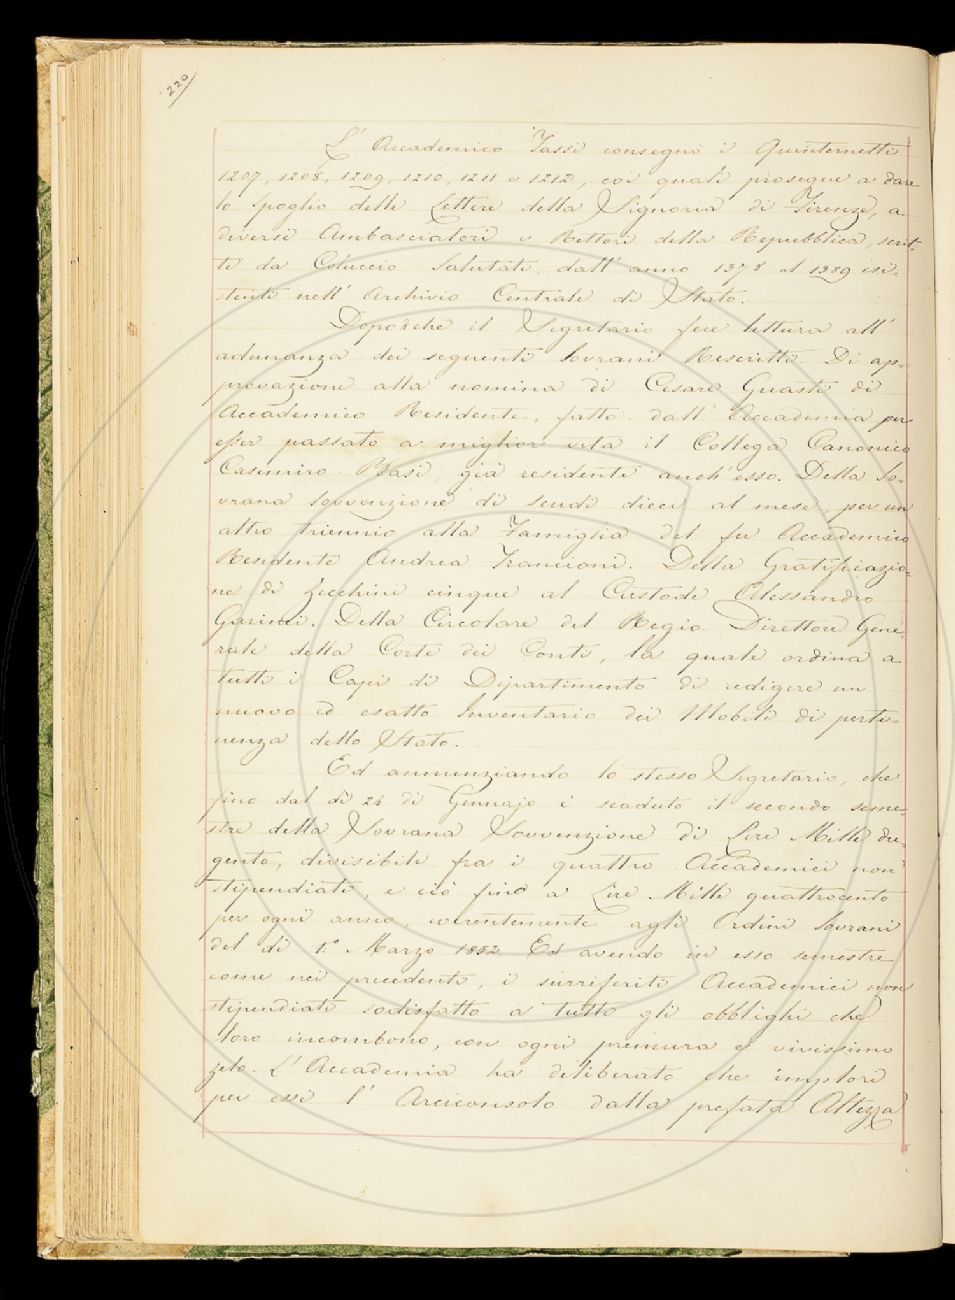 220
L' Accademico Tassi consegnò i Quinternetti
1207, 1208, 1209, 1210, 1211 e 1212, coi quali prosegue a dare
lo spoglio delle Lettere della Signoria di Firenze, a
diversi Ambasciatori e Rettori della Repubblica, scrit-
te da Coluccio Salutati, dall' anno 1378 al 1389 esi-
stenti nell' Archivio Centrale di Stato.
Dopodiche il Segretario fece lettura all'
adunanza dei seguenti Sovrani Rescritti. Di ap-
provazione alla nomina di Cesare Guasti di
Accademico Residente, fatta dall' Accademia per
esser passato a miglior vita il Collega Canonico
Casimiro Basi, già residente anch' esso. Della So-
vrana Sovvenzione di scudi dieci al mese, per un
altro triennio alla Famiglia del fu Accademico
Residente Andrea Francioni. Della Gratificazio-
ne di Zecchini cinque al Custode Alessandro
Garinei. Della Circolare del Regio Direttore Gene-
rale della Corte dei Conti, la quale ordina a
tutti i Capi di Dipartimento di redigere un
nuovo ed esatto Inventario dei Mobili di perti-
nenza dello Stato.
Ed annunziando lo stesso Segretario, che
fino dal dì 24 di Gennajo è scaduto il secondo seme-
stre della Sovrana Sovvenzione di Lire Mille du-
gento, divisibile fra i quattro Accademici non
stipendiati, e ciò fino a Lire Mille quattrocento
per ogni anno, coerentemente agli Ordini Sovrani
del dì 1.° Marzo 1852. Ed avendo in esso semestre
come nei precedenti, i surriferiti Accademici non
stipendiati sodisfatto a tutti gli obblighi che
loro incombono, con ogni premura e vivissimo
zelo. L' Accademia ha deliberato che implori
per essi l' Arciconsolo dalla prefata Altezza